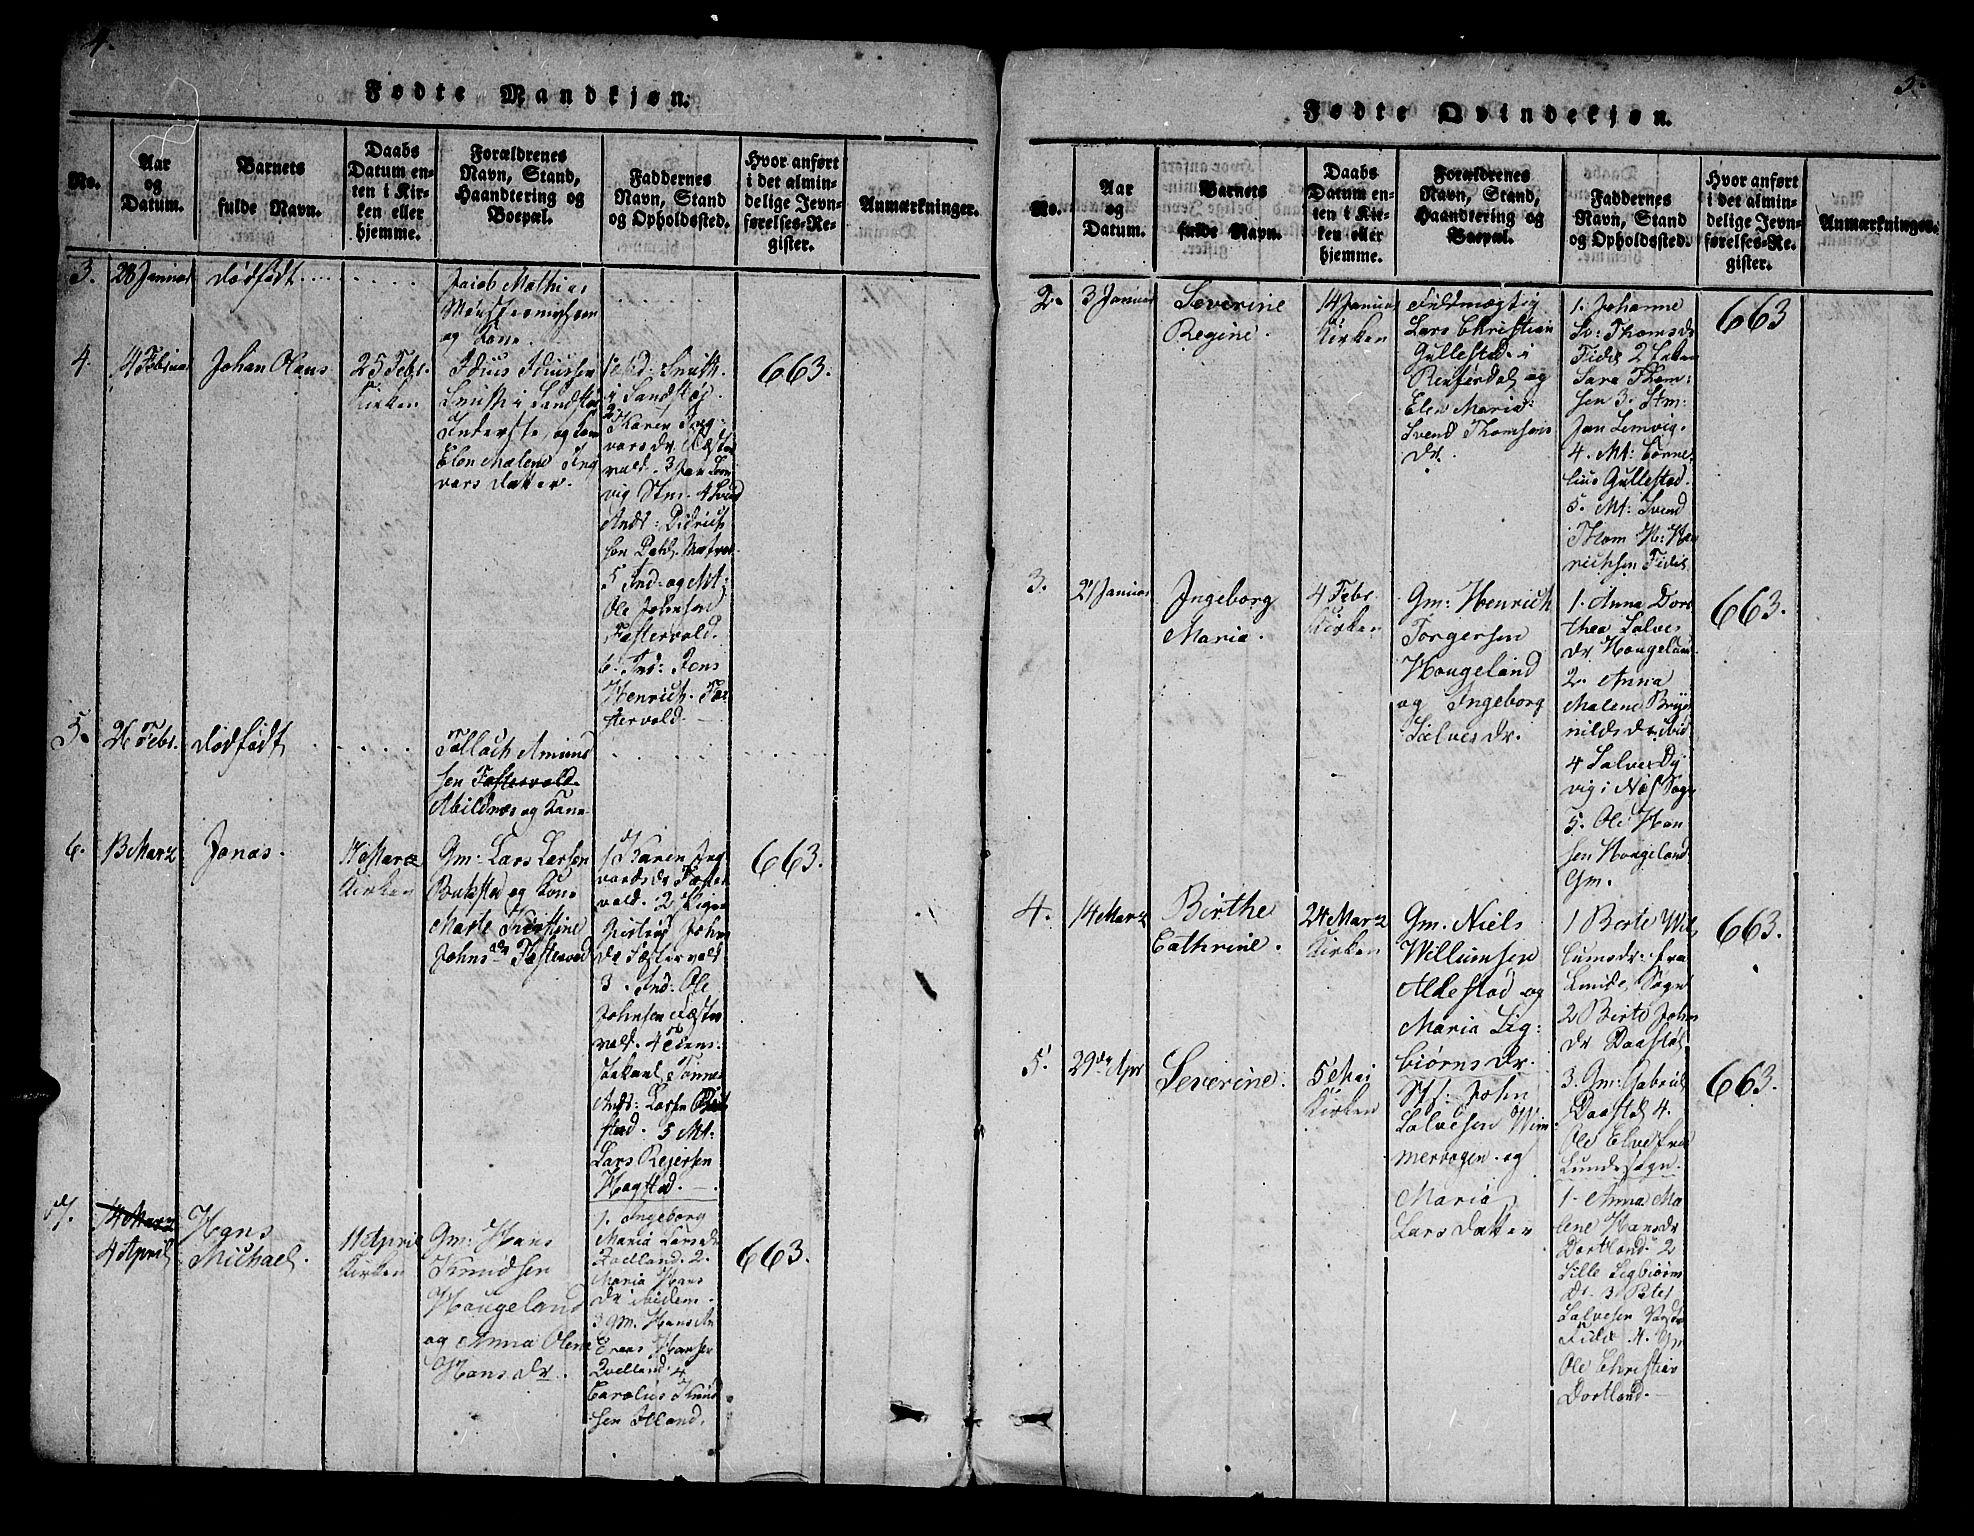 4.
Fødte Mandkjøn.
No.
Aar
og
Datum.
Barnets
fulde Navn.
Daabs
Datum en-
ten i Kir-
ken eller
hjemme.
Forældrenes
Navn, Stand,
Haandtering og
Boepæl.
Faddernes
Navn, Stand
og Opholdssted.
Hvor anført
i det almin-
delige Jevn-
førelses-Re-
gister.
Anmærkninger.
3.
28 Januar
dødfødt
Jacob Mathias
og Kone.
4.
14 Februar
Johan Olaus
25 Febr.
Kirken
Smith i
og
Elen Malene Ing
vars Datter.
Smith
i
2 Karen Ing-
vars dr.
vald. 3 Jan Lem
vig Stm. 4
And: Didrich
sen Dahl
5 Ind: og Mt:
Ole Johnsen
Fæstervold.
6. Ind: Jens
Henrich Fæ
stervold.
663.
5.
26 Febr.
dødfødt
Tallach Amund
sen Fæstervold
Abildnæs og Kone
6.
13 Marz
Jonas.
17 Marz
Kirken
Gm: Lars Larsen
Bukstad og Kone
Marte Kirstine
Johns dr Fæstervold
1 Karen Ing
vards dr Fæster
vald. 2 Pigen
John
dr Fæstervald
3. Ind: Ole
Johnsen Fæster
vald. 4
Tønnes
And: Larsen
stad. 5 Mt:
Lars Reiersen
Hagstad.
663.
7.
14 Marz
4 April
Hans
Michael.
11 April
Kirken
Gm: Hans
Knudsen
Haugeland
og Anna Olene
Hans dr.
1. Ingeborg
Maria Lars dr
2.
Maria Hans
dr ibidem.
3 Gm. Hans An
Hansen
4
Carolus Knud
sen
663.
5.
Fødte Qvindekjøn.
No.
Aar
og
Datum.
Barnets
fulde Navn.
Daabs
Datum en-
ten i Kir-
ken eller
hjemme.
Forældrenes
Navn, Stand,
Haandtering og
Boepæl.
Faddernes
Navn, Stand
og Opholdssted.
Hvor anført
i det almin-
delige Jevn-
førelses-Re-
gister.
Anmærkninger.
2.
3 Januar
Severine
Regine.
14 Januar
Kirken
Fuldmægtig
Lars Christian
Gullestad i
Reiersdal og
Elen Maria
Svend Thomsens
dr.
1. Johanne
Sv: Thoms dr
Fide 2
Sara Thom-
sen 3. Stm:
Jan Lemvig.
4. Mt: Corne
lius Gullestad.
5. Mt: Svend
Thom
richsen Fide
663
3.
21 Januar
Ingeborg
Maria.
4 Febr.
Kirken
Gm: Henrich
Torgersen
Haugeland
og Ingeborg
Salves dr.
1. Anna Doro
thea Salves
dr Haugeland
2. Anna
Malene Bryn
nilds dr ibid
4 Salve Dy
vig i Næs Sogn
5. Ole Han
sen Haugeland
Gm.
663.
4.
14 Marz
Birthe
Cathrine.
24 Marz
Kirken
Gm. Niels
Willumsen
Aldestad og
Maria Sig-
biørns dr.
1 Berte Wil
lums dr: fra
Lunde Sogn
2 Birte John
dr Daastøl
3. Gm: Gabriel
Daastøl 4.
Ole Elve fra
Lunde sogn.
663.
5.
29de Apr
Severine.
5 Mai
Kirken
John
Salvesen Wim
mervogen og
Maria
Lars datter
1. Anna Ma
lene Hans dr
Dortland 2
Sille Sigbiørn
dr. 3. Peder
Salvesen
Fide 4. Gm
Ole Christian
Dortland.
663.